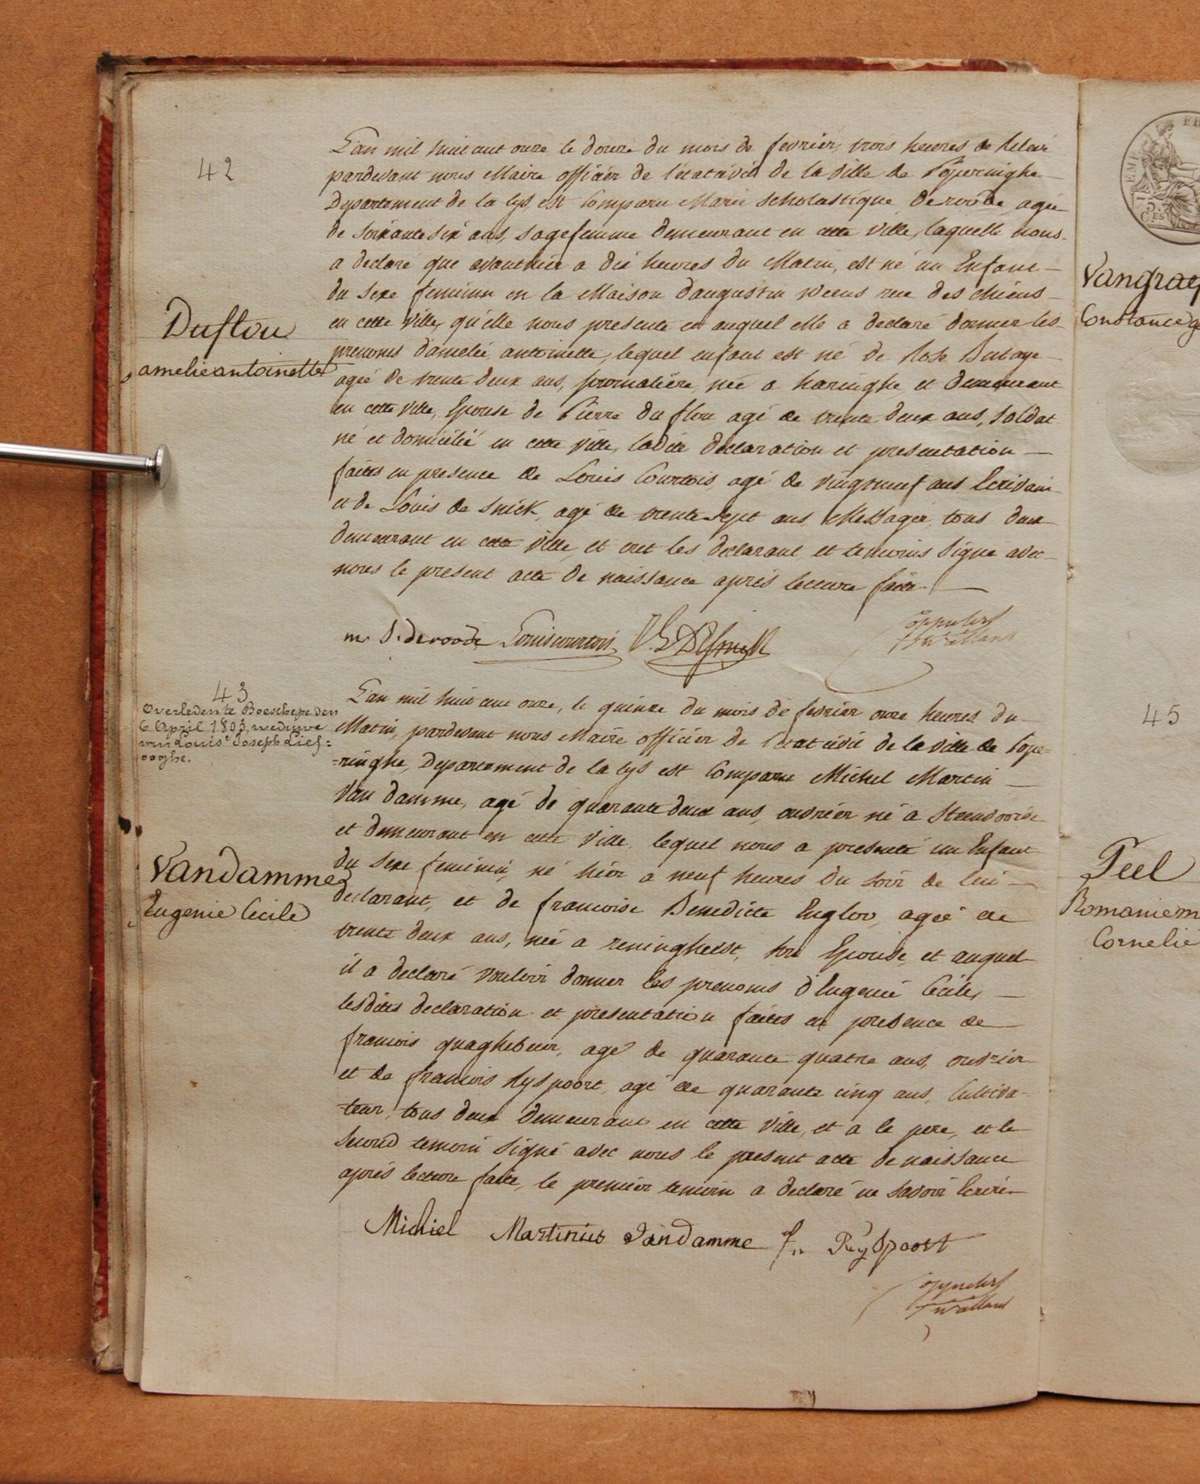 42
Duflou
amelie antoinette
L'an mil huit cent onze le douze du mois de fevrier, trois heures de relevée
pardevant nous Maire officier de l'état civil de la Ville de Poperinghe
Departement de la Lys est comparu Marie Scholastique Deroode, agée
de soixante six ans, sagefemme demeurant en cette ville, laquelle nous
a declaré que avanthier a dix heures du Matin, est né un Enfant
du sexe feminin en la Maison d'augustin rue des chiens
en cette ville, qu'elle nous presente et auquel elle a declaré donner les
prenoms d'amelie antoinette, lequel enfant est né de Rose
agée de trente deux ans, journalière née a haringhe et demeurant
en cette ville, Epouse de Pierre du flou agé de trente deux ans, soldat
né et domicilié en cette ville, ladite declaration et presentation
faites en presence de Louis Courtois, agé de vingt neuf ans Ecrivain
et de Louis de Snick, agé de trente sept ans Messager, tous deux
demeurant en cette ville et ont les declarant et temoins signe avec
nous le present acte de naissance après lecture faite
m. S. deroode Louis courtois L DeSnick
43
Overleden te Boeschepe den
6 April 1893, weduwe
van Louis Joseph Lief=
ooghe.
Vandamme
Eugenie Cecile
L'an mil huit cent onze, le quinze du mois de fevrier onze heures du
Matin, pardevant nous Maire officier de l'état civil de la ville de Pope-
-ringhe, Departement de la Lys est comparu Michel Martin
Van damme, agé de quarante deux ans, ouvrier né a Steenvoorde
et demeurant en cette ville, lequel nous a presenté un Enfant
du sexe feminin, né hier a neuf heures du soir de lui
declarant, et de françoise Benedicte Englov, agée de
trente deux ans, née a reninghelst, son Epouse, et auquel
il a declaré vouloir donner les prenoms d'Eugenie Cecile,
lesdites declaration et presentation faites en presence de
francois quaghebeur, agé de quarante quatre ans, ouvrier
et de francois Ryspoort, agé de quarante cinq ans, Cultiva-
-teur, tous deux demeurant en cette ville, et a le pere, et le
second temoin signé avec nous le present acte de naissance
après lecture faite, le premier temoin a declaré ne savoir Ecrire
Michiel Martinus Vandamme fr Ryspoort
Vangrae
Constance
45
Peel
Romanie m
Cornelie